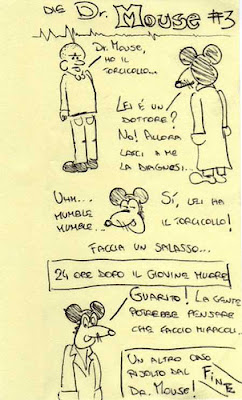 DIE Dr. MOUSE #3
Dr. MOUSE,
HO IL
TORCICOLLO...
LEI È UN
DOTTORE?
NO! ALLORA
LASCI A ME
LA DIAGNOSI...
UHM...
MUMBLE
MUMBLE...
SÍ, LEI HA
IL TORCICOLLO!
FACCIA UN SALASSO...
24 ORE DOPO IL GIOVINE MUORE!
GUARITO! LA GENTE
POTREBBE PENSARE
CHE FACCIO MIRACOLI...
UN ALTRO CASO
RISOLTO DAL
Dr. MOUSE!
FINE